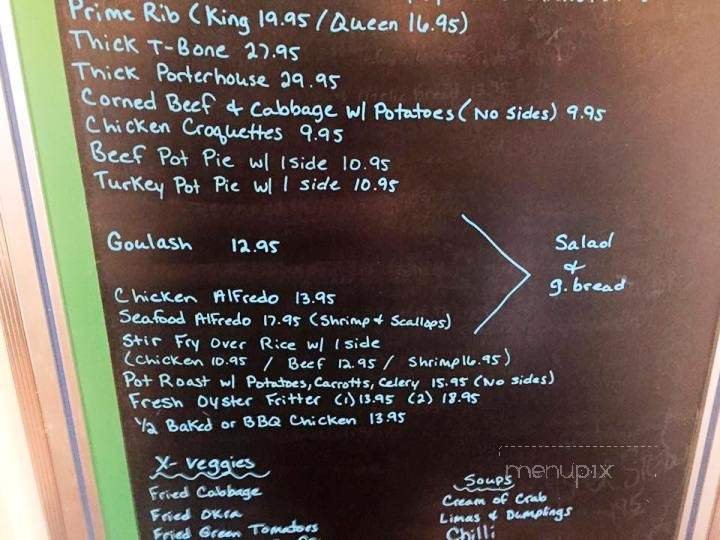 Prime Rib (King 19.95 / Queen 16.95)
Thick T-Bone 27.95
Thick Porterhouse 29.95
Corned Beef & Cabbage w/ Potatoes (No sides) 9.95
Chicken Croquettes 9.95
Beef Pot Pie w/ 1 side 10.95
Turkey Pot Pie w/ 1 side 10.95
Goulash 12.95
Salad
&
g. bread
Chicken Alfredo 13.95
Seafood Alfredo 17.95 (Shrimp & Scallops)
Stir Fry Over Rice w/ 1 side
(Chicken 10.95 / Beef 12.95 / Shrimp 16.95)
Pot Roast w/ Potatoes, Carrotts, Celery 15.95 (No sides)
Fresh Oyster Fritter (1) 13.95 (2) 18.95
1/2 Baked or BBQ Chicken 13.95
X-veggies
Fried Cabbage
Fried Okra
Fried Green Tomatoes
Soups
Cream of Crab
Limas & Dumplings
Chilli
menupix